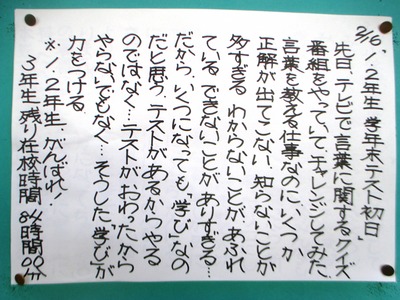 2/6. 1・2年生 学年末テスト初日
先日、テレビで「言葉に関するクイズ」
番組をやっていてチャレンジしてみた。
言葉を教える仕事なのに、いくつか
正解が出てこない。知らないことが
多すぎる わからないことがあふれ
ている できないことがありすぎる…
だから、いくつになっても、"学び"なの
だと思う。テストがあるからやる
のではなく…テストがおわったから
やらないでもなく…そうした"学び"が
力をつける
※1・2年生、がんばれ!
3年生残り在校時間84時間00分